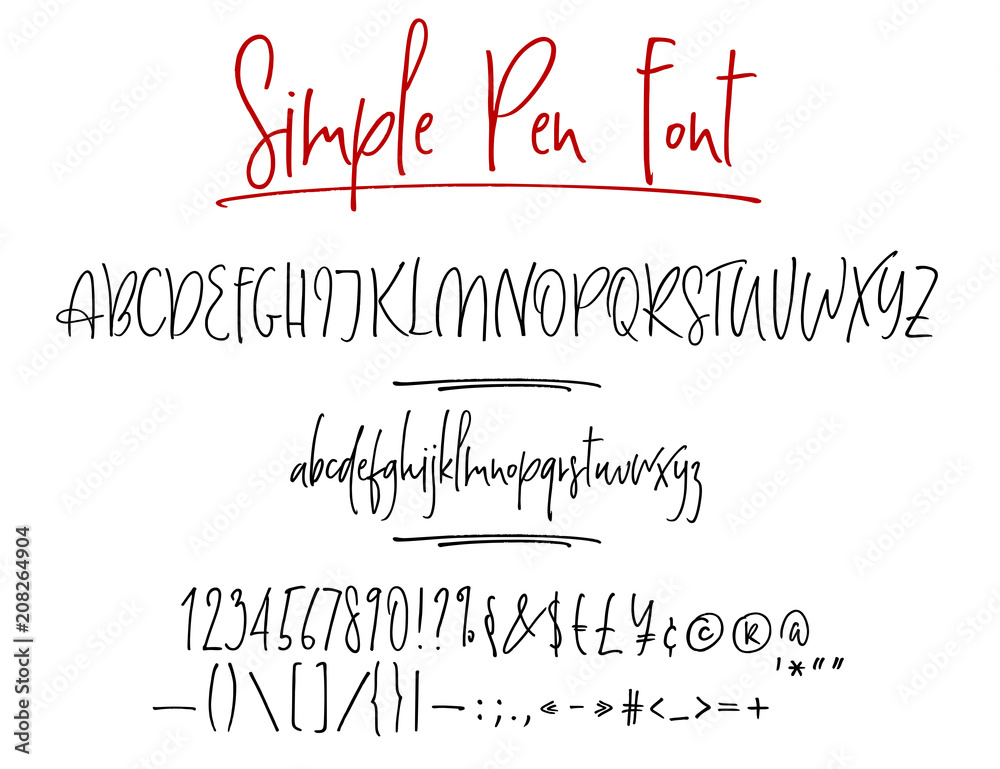 Simple Pen Font
ABCDEFGHIJKLMNOPQRSTUVWXYZ
abcdefghijklmnopqrstuvwxyz
1234567890!?%§&$€£¥¢©®@
'*“”
—()\[]/{}|—:;.,«-»#<_>=+
Adobe Stock | #208264904